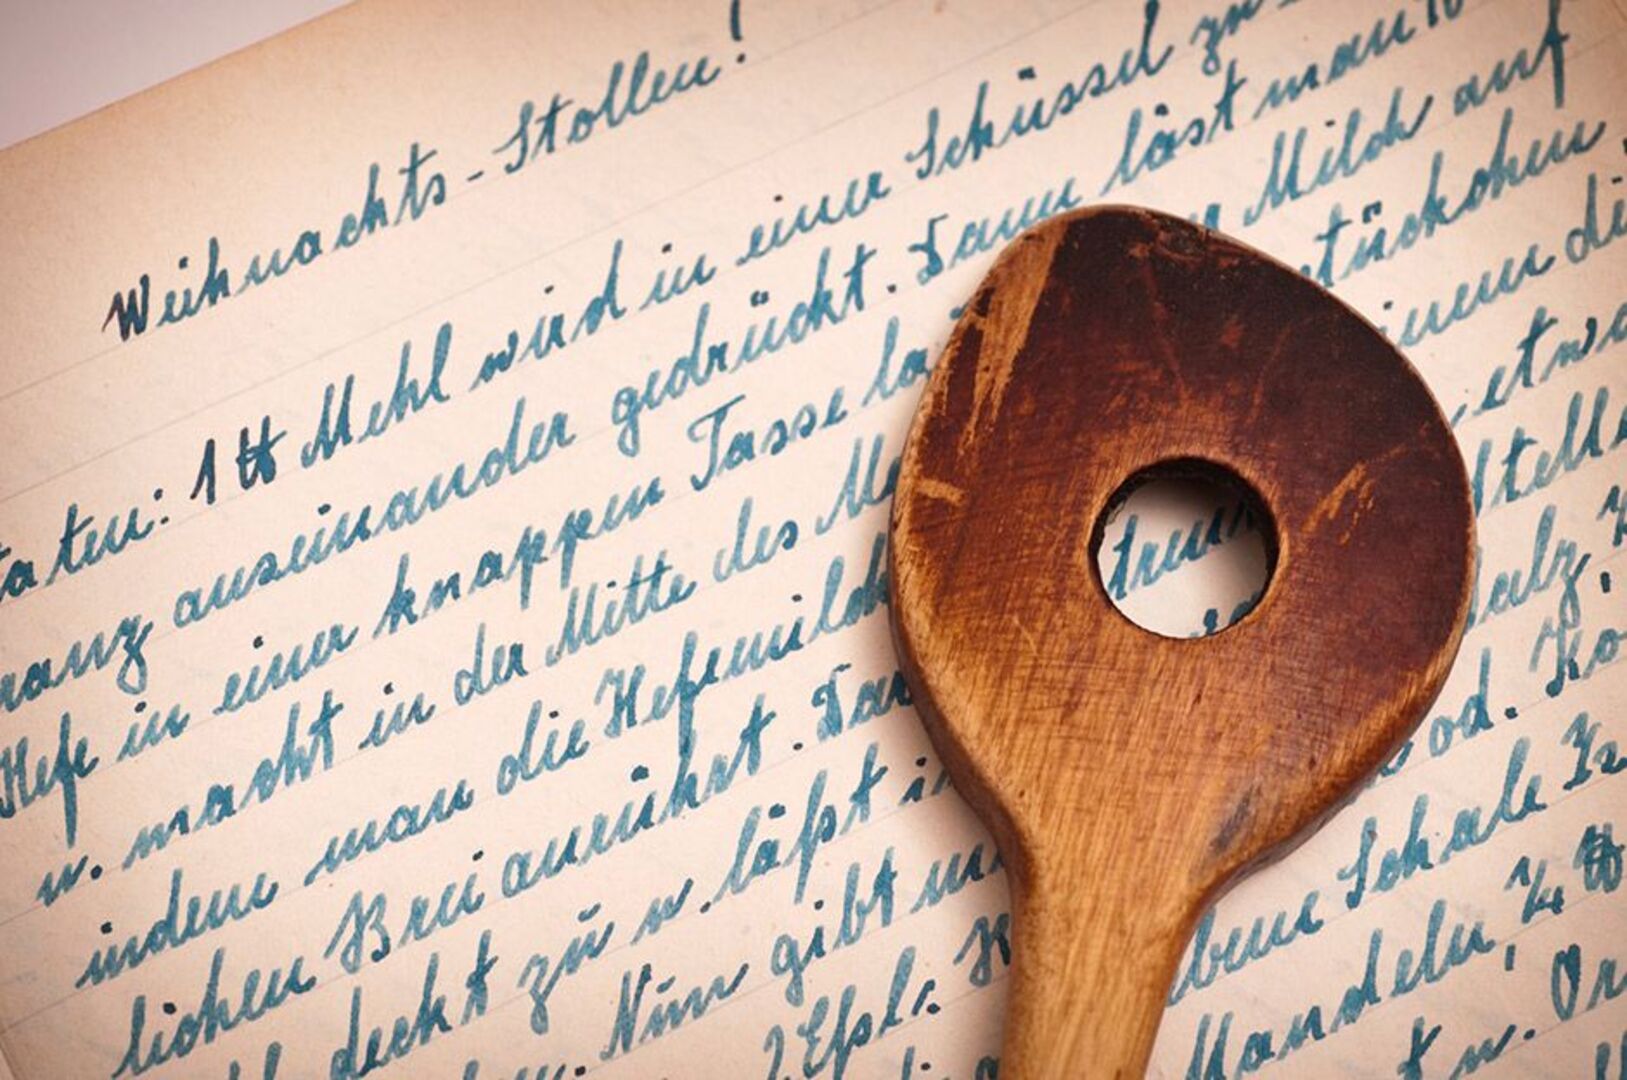 Weihnachts-Stollen!
taten: 1 ℔ Mehl wird in einer Schüssel zu
ganz auseinander gedrückt. Dann löst man 10
Hefe in einer knappen Tasse la Milch auf
u. macht in der Mitte des Me stückchen,
indem man die Hefemilch streut einem di
lichen Brei anrührt. Dan etwa
deckt zu u. läßt i dtelle
Nun gibt m alz,
2 Eßl. K od. Ko
bene Schale Zi
Mandeln, ¼ ℔
t u. Or